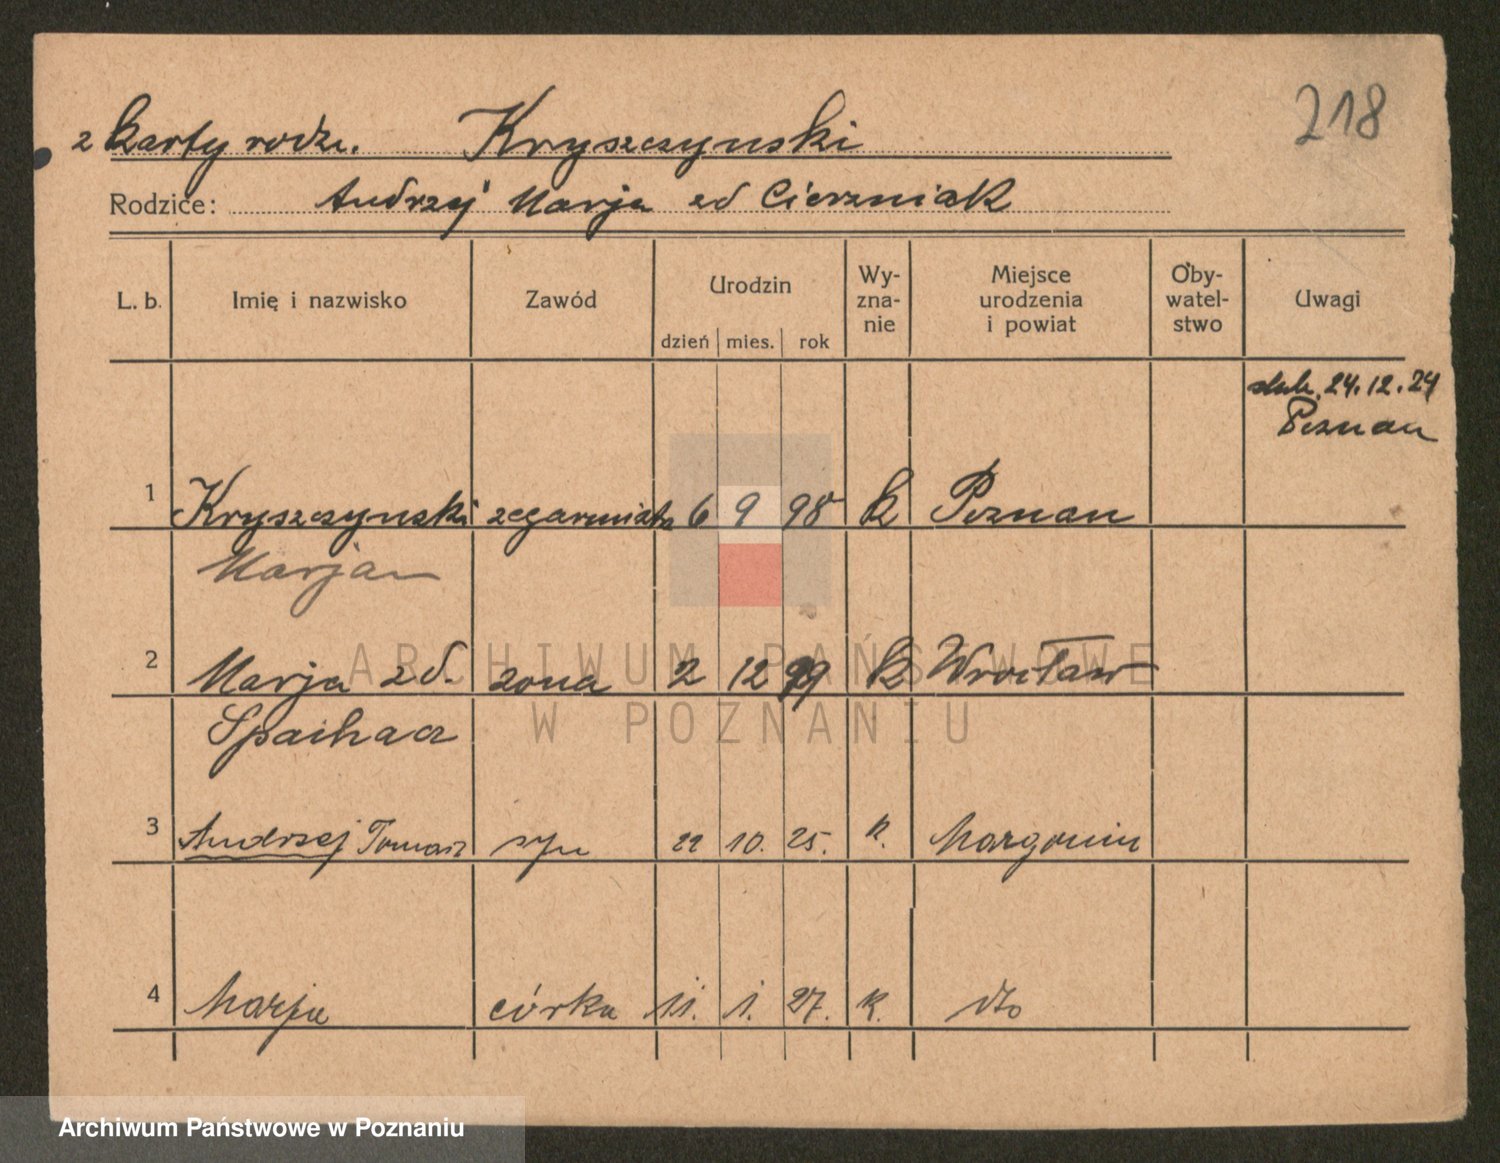 218
z karty rodz. Kryszczynski
Rodzice: Andrzej Marja zd Cierzniak
L. b. Imię i nazwisko Zawód Urodzin dzień mies. rok Wy-zna-nie Miejsce urodzenia i powiat Oby-watel-stwo Uwagi
24.12.24
Poznan
1 Kryszczynski zegarmistrz 6 9 98 k Poznan
Marjan
2 Marja zd. zona 2 12 99 k Wrocław
3 Andrzej Tomasz syn 22 10. 25. k. Margonin
4 Marja córka 11. 1. 27. k. dto
ARCHIWUM PAŃSTWOWE
W POZNANIU
Archiwum Państwowe w Poznaniu